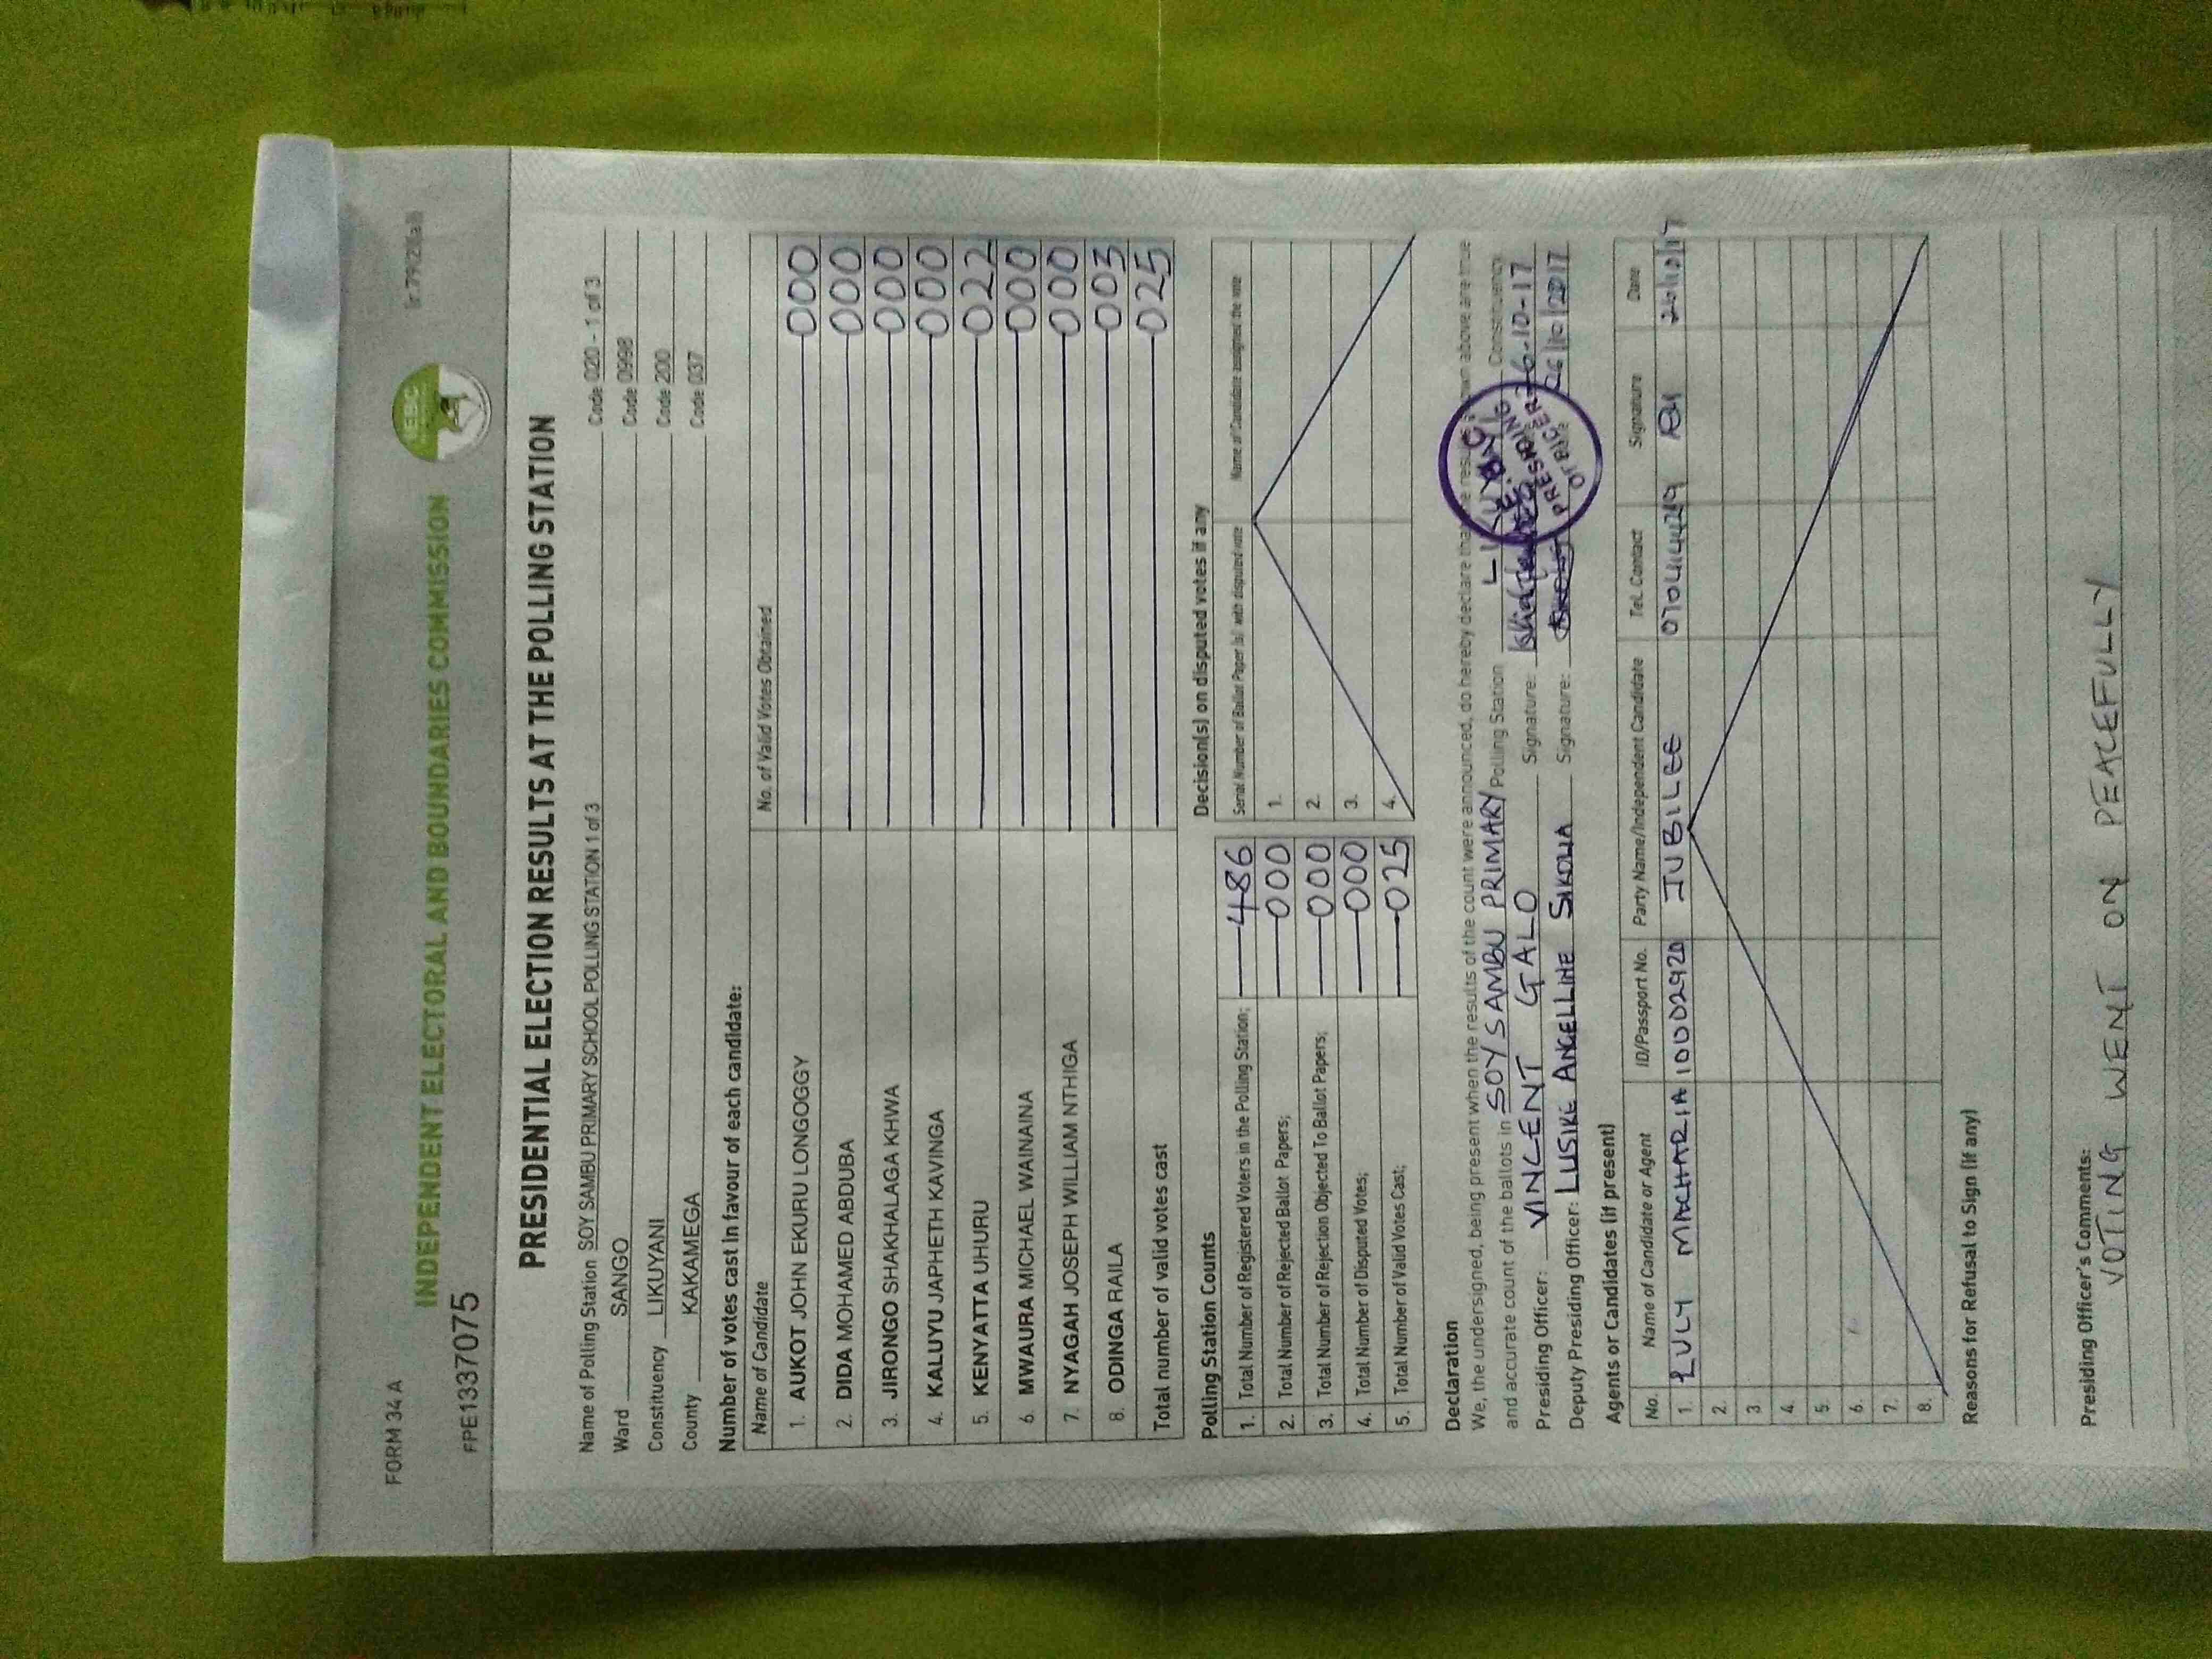 FORM 34 A
INDEPENDENT ELECTORAL AND BOUNDARIES COMMISSION
IEBC
FPE1337075
PRESIDENTIAL ELECTION RESULTS AT THE POLLING STATION
Name of Polling Station SOY SAMBU PRIMARY SCHOOL POLLING STATION 1 of 3 Code 020 - 1 of 3
Ward SANGO Code 0998
Constituency LIKUYANI Code 200
County KAKAMEGA Code 037
Number of votes cast in favour of each candidate:
Name of Candidate No. of Valid Votes Obtained
1. AUKOT JOHN EKURU LONGOGGY 000
2. DIDA MOHAMED ABDUBA 000
3. JIRONGO SHAKHALAGA KHWA 000
4. KALUYU JAPHETH KAVINGA 000
5. KENYATTA UHURU 022
6. MWAURA MICHAEL WAINAINA 000
7. NYAGAH JOSEPH WILLIAM NTHIGA 000
8. ODINGA RAILA 003
Total number of valid votes cast 025
Polling Station Counts
1. Total Number of Registered Voters in the Polling Station; 486
2. Total Number of Rejected Ballot Papers; 000
3. Total Number of Rejection Objected To Ballot Papers; 000
4. Total Number of Disputed Votes; 000
5. Total Number of Valid Votes Cast; 025
Decision(s) on disputed votes if any
Serial Number of Ballot Paper (s) with disputed vote Name of Candidate assigned the vote
1.
2.
3.
4.
Declaration
We, the undersigned, being present when the results of the count were announced, do hereby declare that the results shown above are true
and accurate count of the ballots in SOY SAMBU PRIMARY Polling Station Constituency
Presiding Officer: VINCENT GALO Signature: 26-10-17
Deputy Presiding Officer: LUSIKE ANGELLINE SIKOLIA Signature: 26/10/2017
PRESIDING OFFICER
Agents or Candidates (if present)
No. Name of Candidate or Agent ID/Passport No. Party Name/Independent Candidate Tel. Contact Signature Date
1. MACHARIA 10002920 JUBILEE 26/10/17
2.
3
4.
5.
6.
7.
8.
Reasons for Refusal to Sign (if any)
Presiding Officer's Comments:
VOTING WENT ON PEACEFULLY